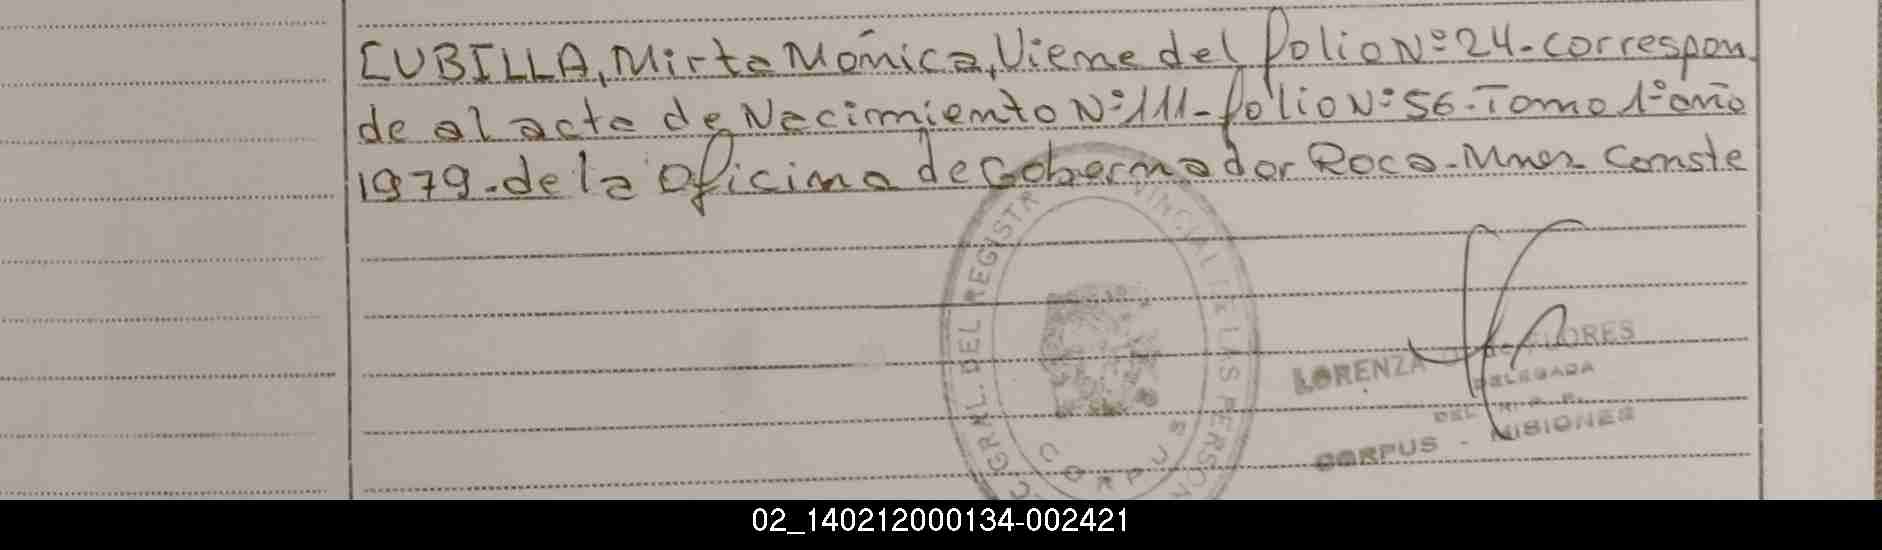 CUBILLA, Mirta Mónica, Viene del folio Nº 24-correspon
de al acta de Nacimiento Nº 111-folio Nº 56-Tomo 1º año
1979-de la Oficina de Gobernador Roca-Mnes. Conste
GRAL. DEL REGISTR VINCIAL DE LAS PERSON
CORPUS
LORENZA FLORES
DELEGADA
DEL R. P. P.
CORPUS - MISIONES
02_140212000134-002421